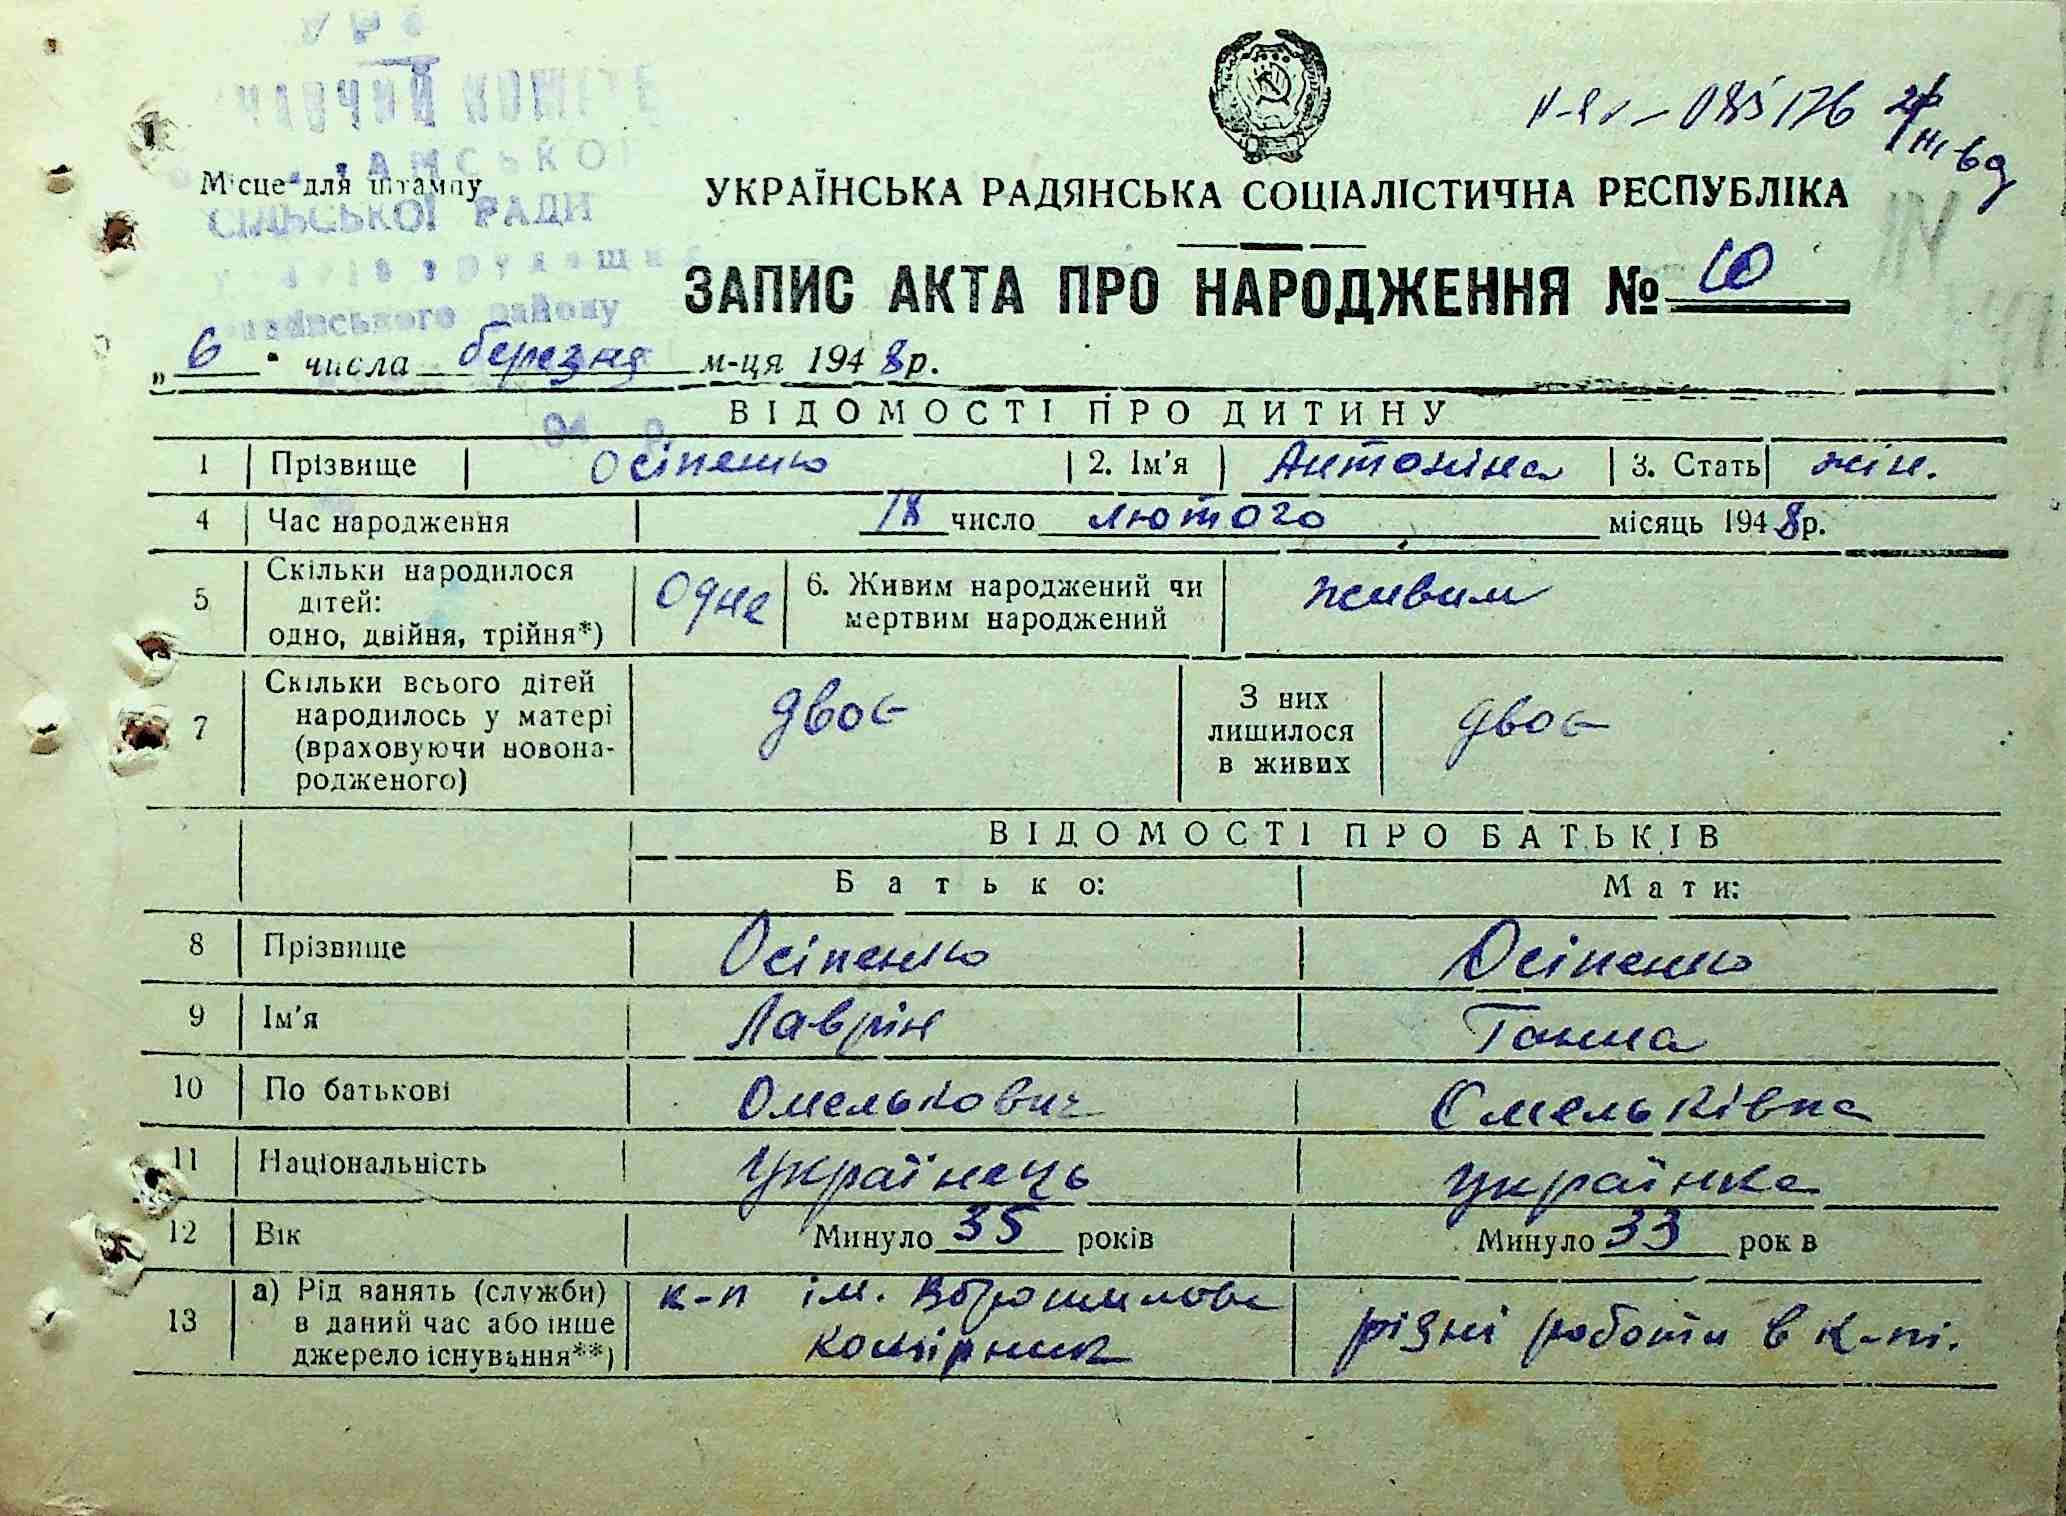 Місце для штампу
СІЛЬСЬКОЇ РАДИ
району
УКРАЇНСЬКА РАДЯНСЬКА СОЦІАЛІСТИЧНА РЕСПУБЛІКА
ЗАПИС АКТА ПРО НАРОДЖЕННЯ № 10
„ 6 " числа березня м-ця 1948 р.
ВІДОМОСТІ ПРО ДИТИНУ
1 Прізвище Осіпенко 2. Ім'я Антоніна 3. Стать жін.
4 Час народження 18 число лютого місяць 1948 р.
5 Скільки народилося дітей: одно, двійня, трійня*) Одне 6. Живим народжений чи мертвим народжений живим
7 Скільки всього дітей народилось у матері (враховуючи новонародженого) двоє З них лишилося в живих двоє
ВІДОМОСТІ ПРО БАТЬКІВ
Батько: Мати:
8 Прізвище Осіпенко Осіпенко
9 Ім'я Лаврін Ганна
10 По батькові Омелькович Омельківна
11 Національність Українець Українка
12 Вік Минуло 35 років Минуло 33 років
13 а) Рід занять (служби) в даний час або інше джерело існування**) к-п ім. Ворошилова комірник різні роботи в к-пі.